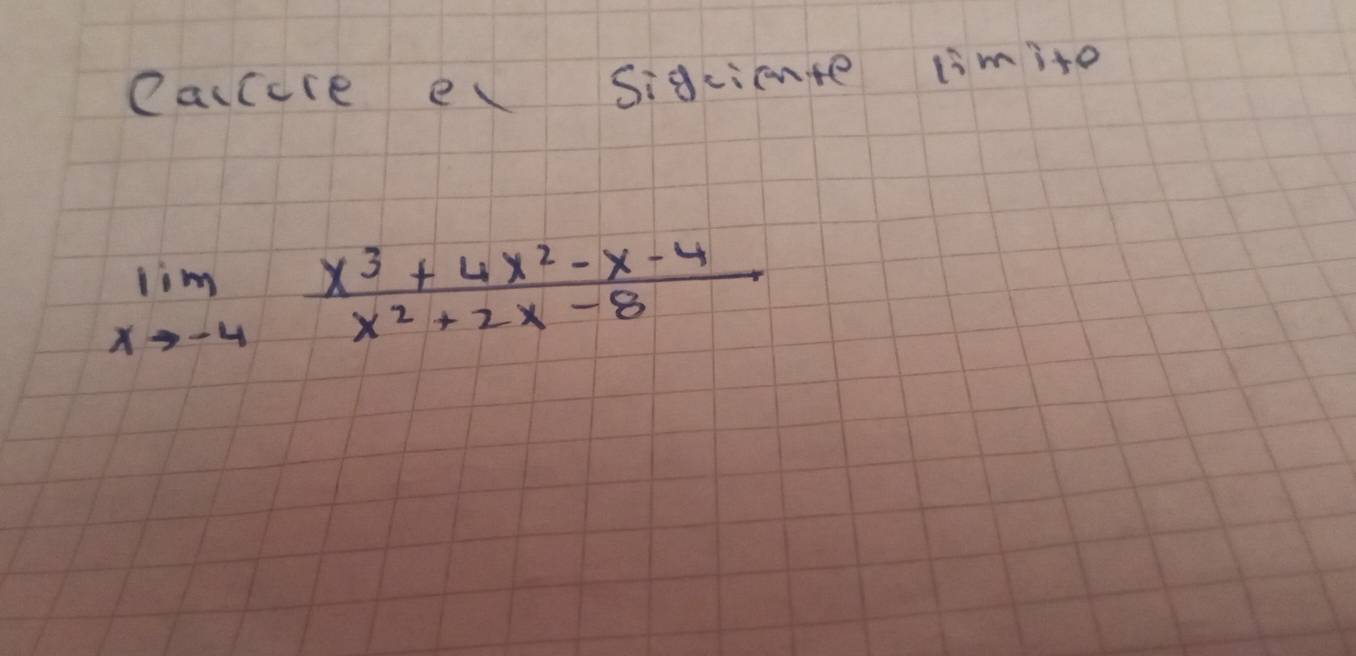 Calcule el siguiente limite
lim x³ + 4x² - x - 4
x → -4 x² + 2x - 8